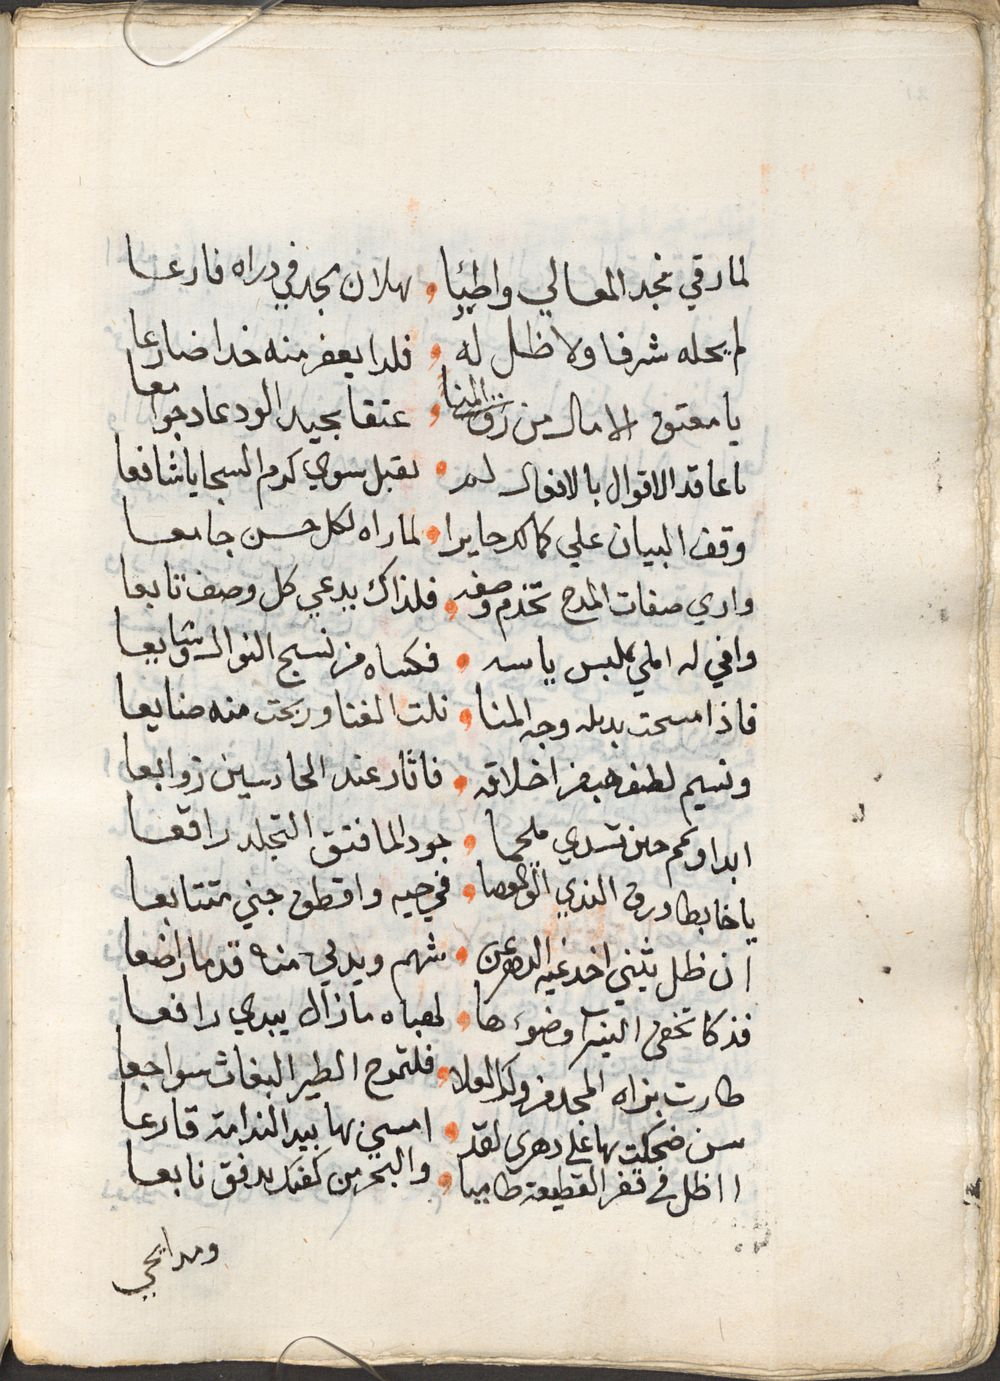 لما رقي نجد المعالي واطيًا • بهلان مجد في دراه فارعا
لم يحله شرفا ولا ظل له • فلدا يعفر منه خدا ضارعا
يا معتق الامال من رق المنا • عنقا بجيد الود عاد جوامعا
ياعاقد الاقوال بالافعال لم • يقبل سوي كرم السجايا شافعا
وقف البيان علي كمالك حايرا • لما راه لكل حسن جامعا
واري صفات المدح تخدم وصفه • فلذاك يدعي كل وصف تابعا
وافي له املي بلبس ياسه • فكساه من نسج النوال وشايعا
فاذا مسحت بديله وجه المنا • نلت الغنا وربحت منه صنايعا
ونسيم لطف هب من اخلاقه • فاثار عند الحاسدين زوابعا
ابدا وكم حين تسدي ملحما • جود لما فتق التجلد راقعا
يا خابطا ورق الندي الق العصا • في حيه واقطف جني متتابعا
ان ظل يثني اخدعيه الدهر عن • شهم ويدلي منه قدما راضعا
فذكا تخفي النيرات وضوءها • لهباه مازال يبدي رافعا
طارت بزاه المجد من وكر العلا • فلتمدح الطير البغاث سواجعا
سن ضحكت بها علي دهري لقد • امسي بها بيد الندامة قارعا
ااظل في قفر القطيعة ظاميا • والبحر من كفيك يدفق نابعا
ومدايحي